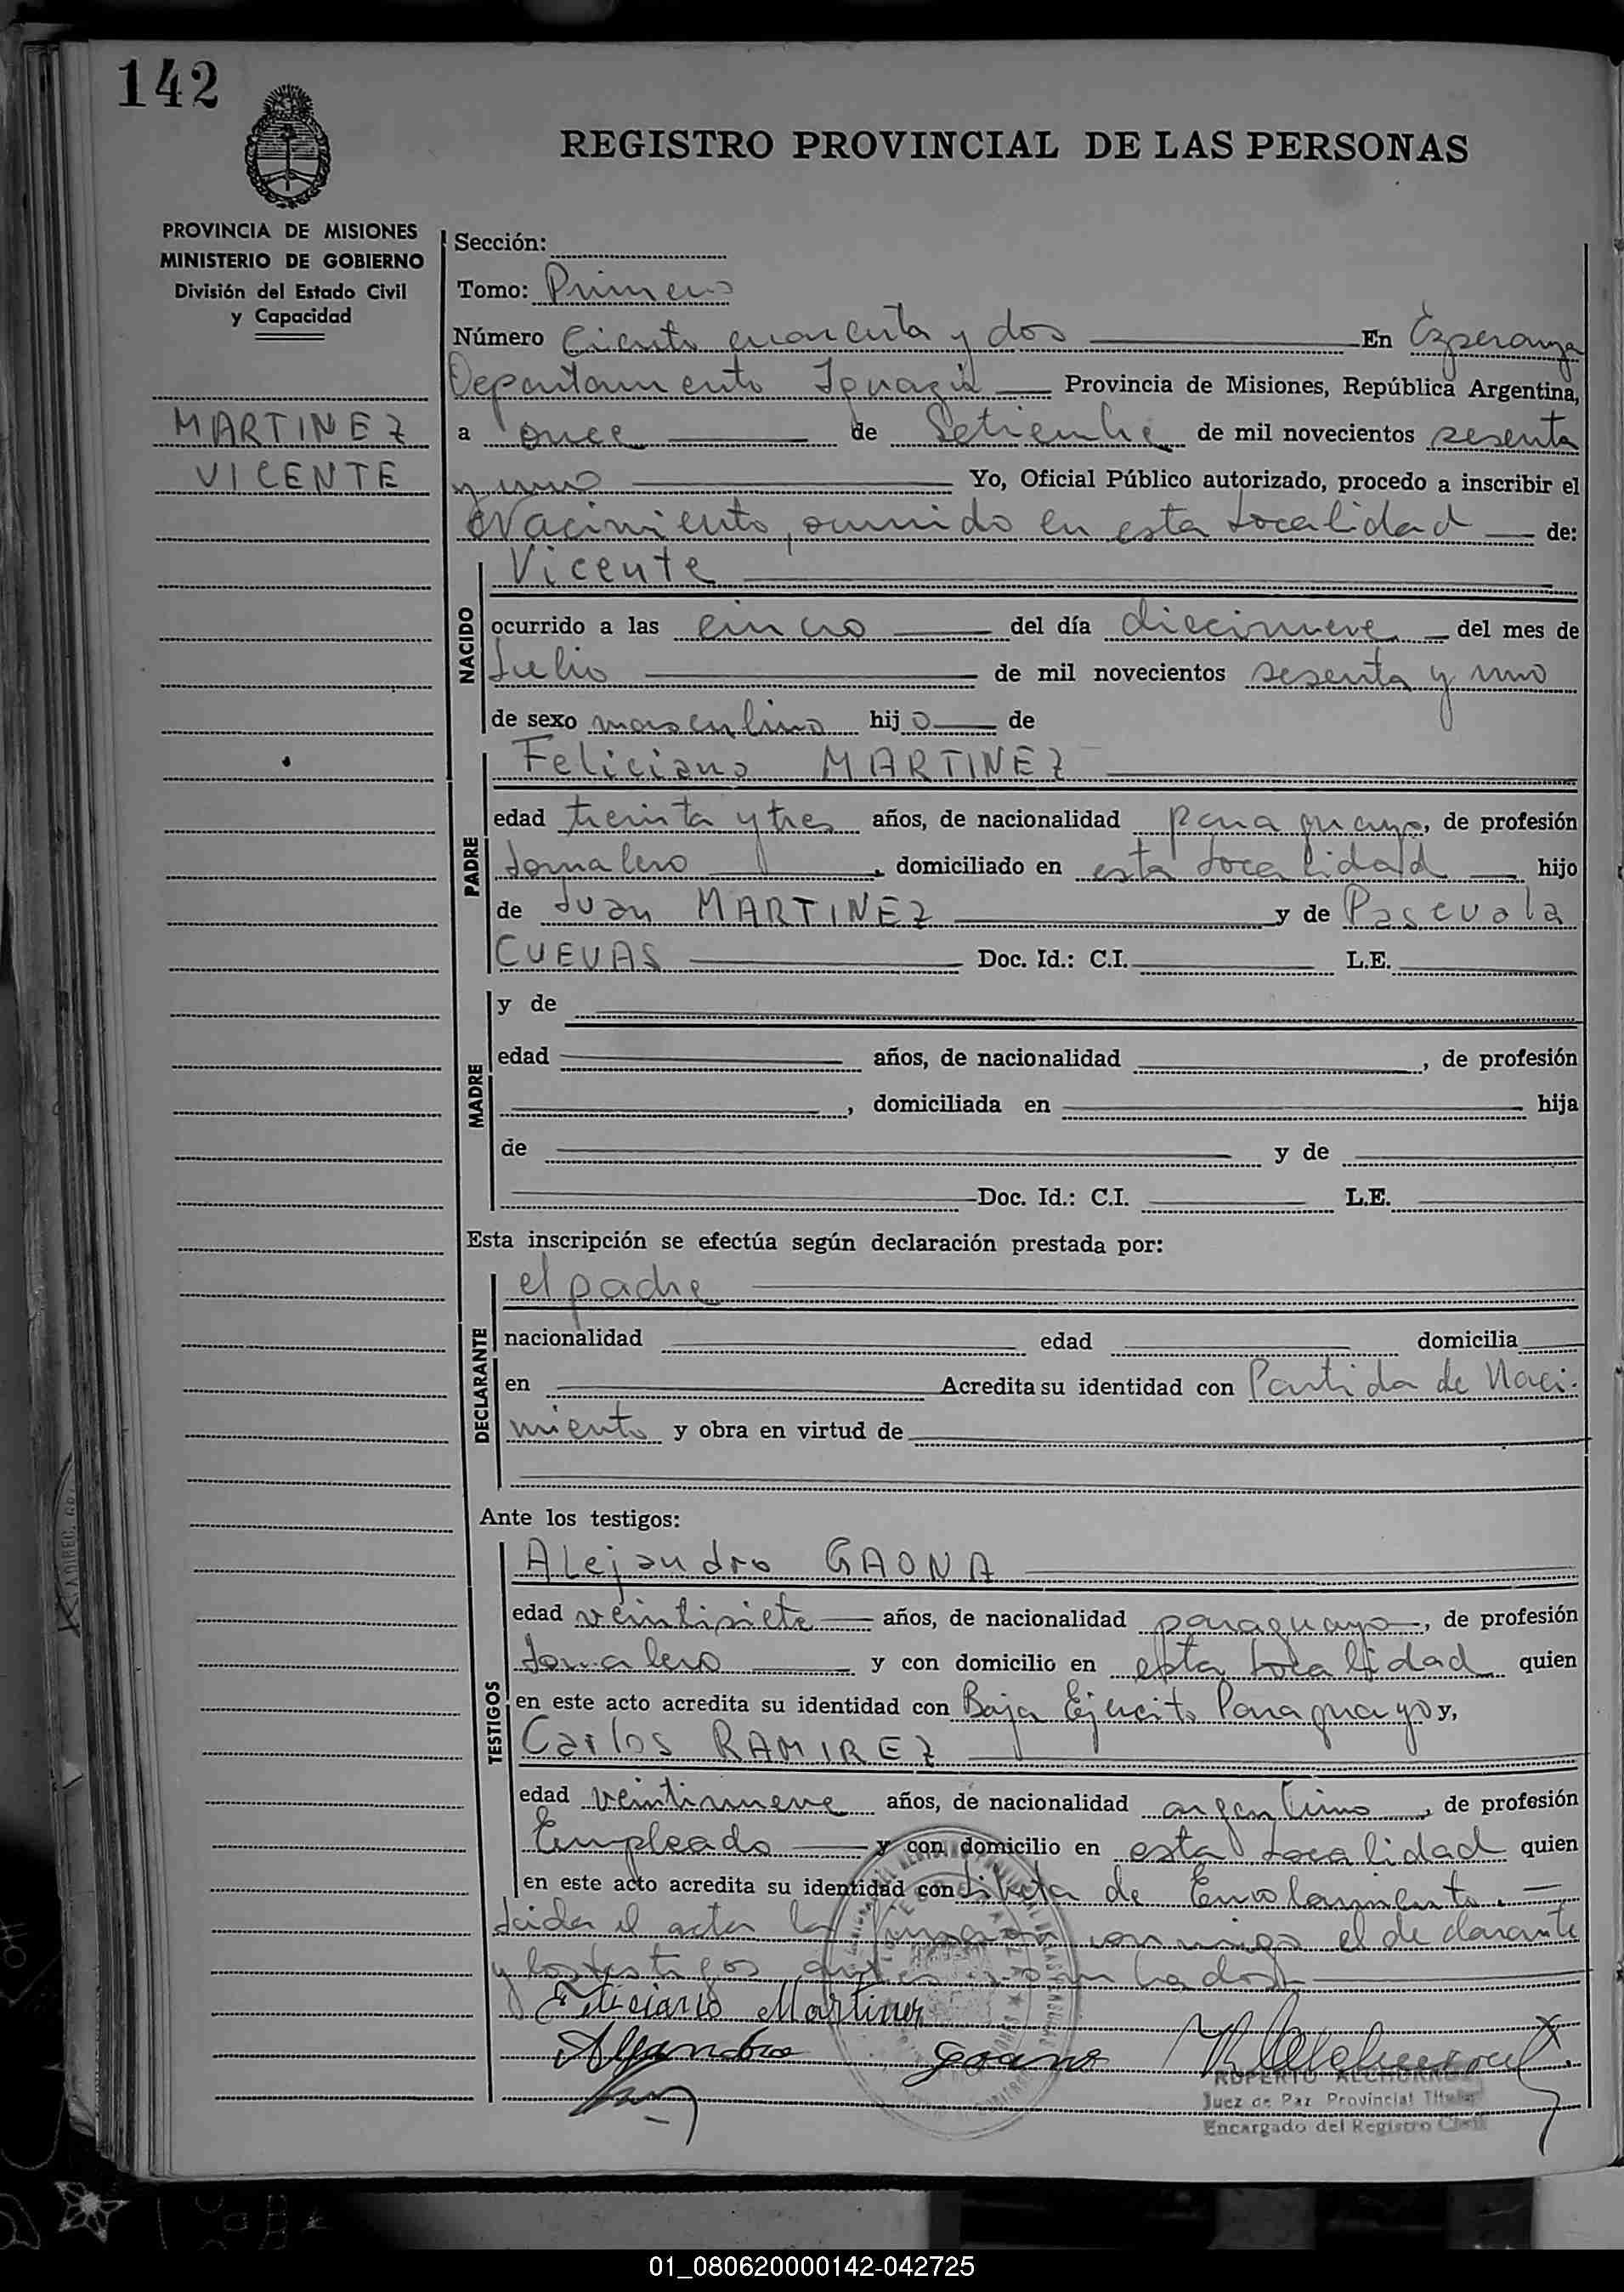 142
REGISTRO PROVINCIAL DE LAS PERSONAS
PROVINCIA DE MISIONES
MINISTERIO DE GOBIERNO
División del Estado Civil
y Capacidad
MARTINEZ
VICENTE
Sección:
Tomo: Primero
Número Ciento cuarenta y dos En Esperanza
Departamento Iguazú Provincia de Misiones, República Argentina,
a once de Setiembre de mil novecientos sesenta
y uno Yo, Oficial Público autorizado, procedo a inscribir el
Nacimiento, ocurrido en esta Localidad de:
NACIDO
Vicente
ocurrido a las cinco del día diecinueve del mes de
Julio de mil novecientos sesenta y uno
de sexo masculino hijo de
PADRE
Feliciano MARTINEZ
edad treinta y tres años, de nacionalidad paraguayo, de profesión
Jornalero, domiciliado en esta Localidad hijo
de Juan MARTINEZ y de Pascuala
CUEVAS Doc. Id.: C.I. L.E.
MADRE
y de
edad años, de nacionalidad , de profesión
, domiciliada en hija
de y de
Doc. Id.: C.I. L.E.
Esta inscripción se efectúa según declaración prestada por:
DECLARANTE
el padre
nacionalidad edad domicilia
en Acredita su identidad con Partida de Naci-
miento y obra en virtud de
Ante los testigos:
TESTIGOS
Alejandro GAONA
edad veintisiete años, de nacionalidad paraguayo, de profesión
Jornalero y con domicilio en esta Localidad quien
en este acto acredita su identidad con Baja Ejercito Paraguayo y,
Carlos RAMIREZ
edad veintinueve años, de nacionalidad argentino, de profesión
Empleado y con domicilio en esta Localidad quien
en este acto acredita su identidad con Libreta de Enrolamiento.
Leida el acta la firman conmigo el declarante
y los testigos antes nombrados
Feliciano Martinez
Alejandro Gaona
RUPERTO
Juez de Paz Provincial Titular
Encargado del Registro Civil
01_080620000142-042725